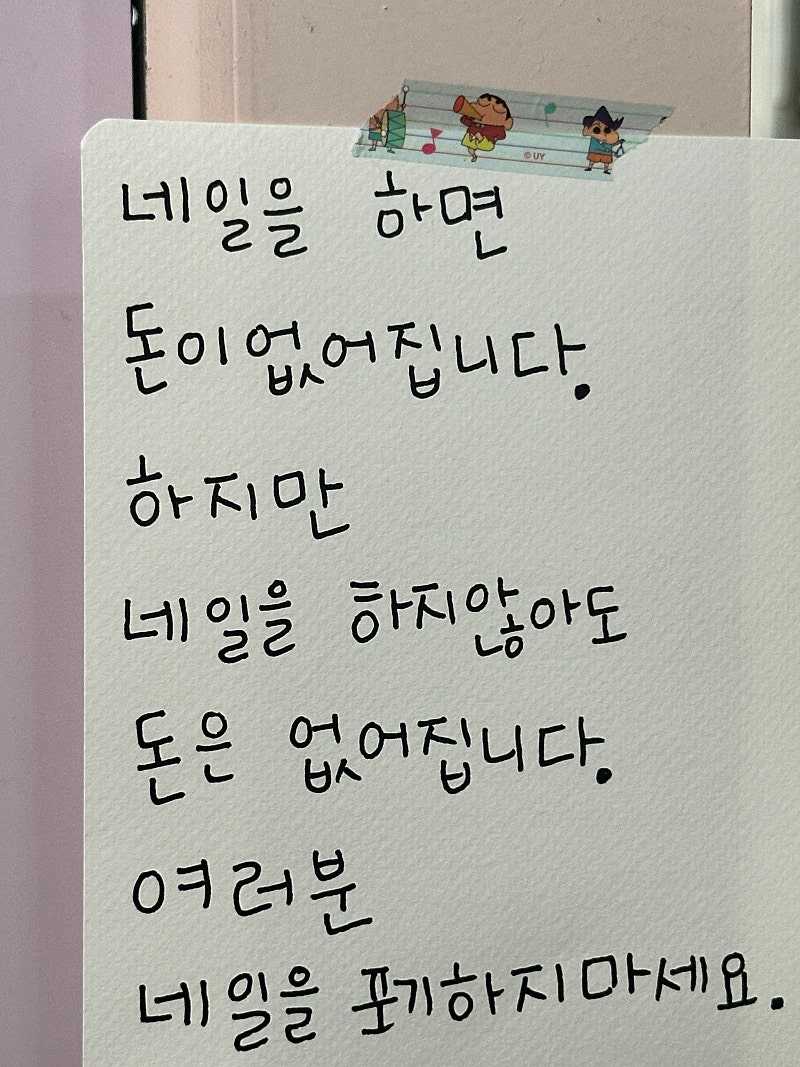 © UY
네일을 하면
돈이없어집니다.
하지만
네일을 하지않아도
돈은 없어집니다.
여러분
네일을 포기하지마세요.